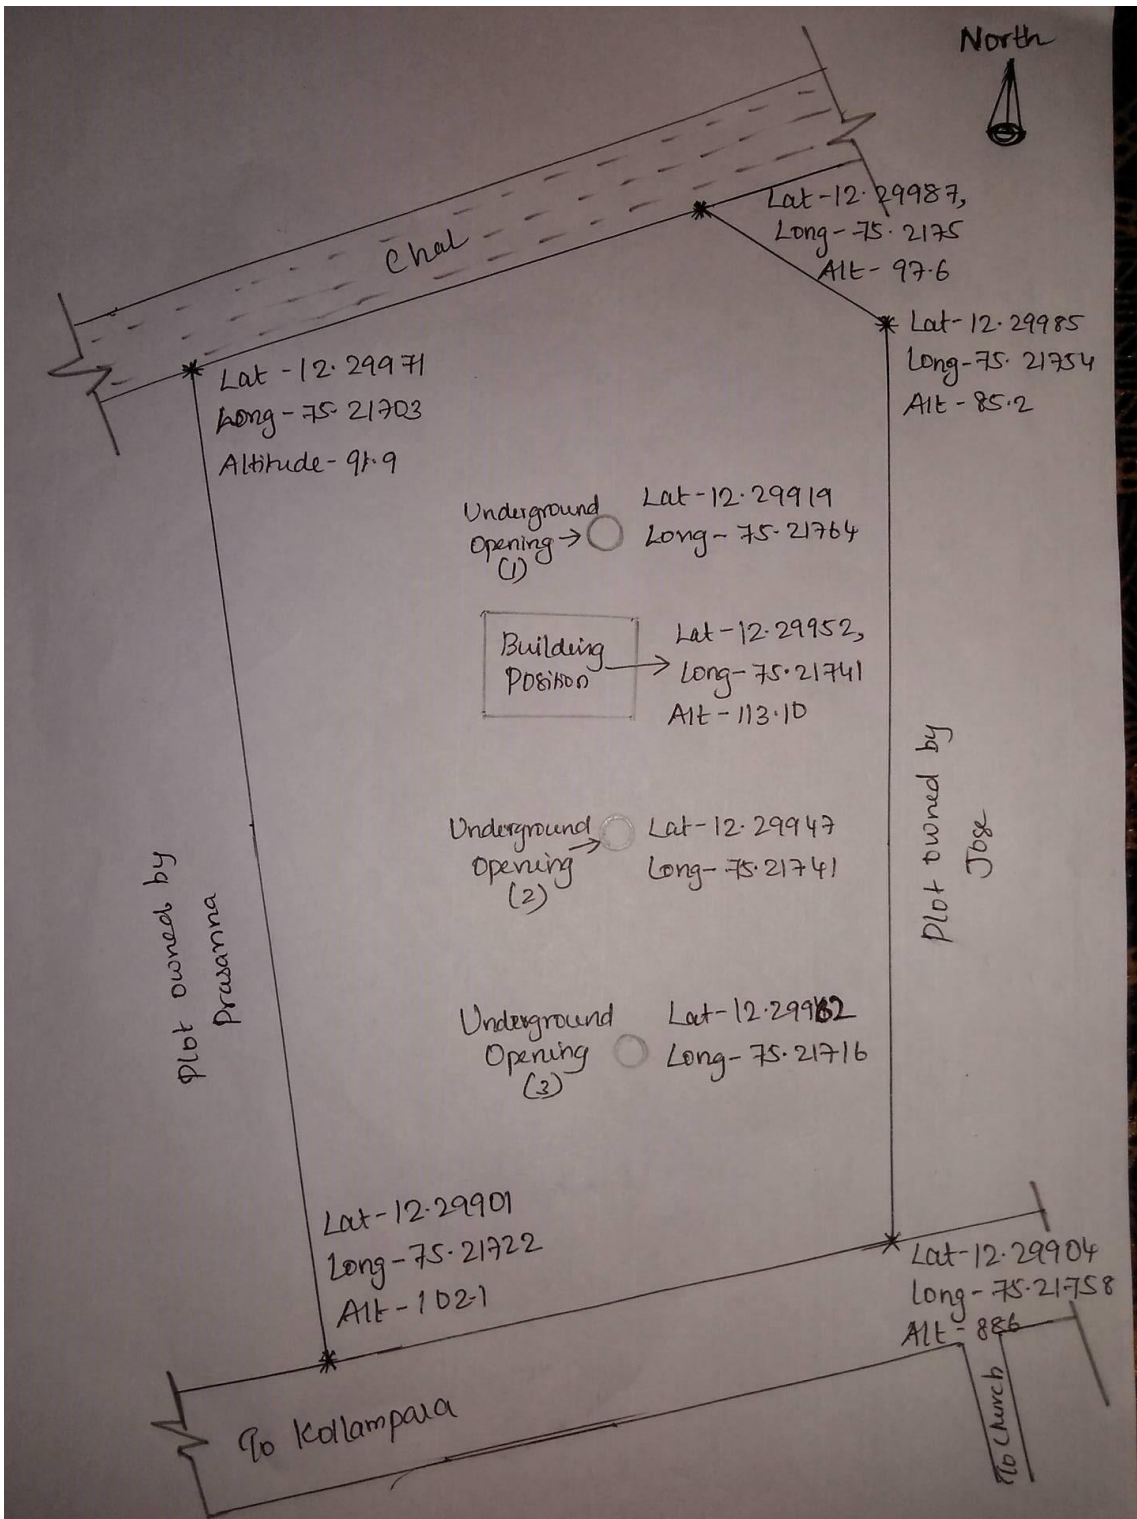 North
Chal
Lat-12.29987,
Long-75.2175
Alt-97.6
Lat-12.29985
Long-75.21754
Alt-85.2
Lat-12.29971
Long-75.21703
Altitude-91.9
Underground
Opening →
(1)
Lat-12.29919
Long-75.21764
Building
Position
Lat-12.29952,
Long-75.21741
Alt-113.10
Plot owned by
Jose
Underground
Opening
(2)
Lat-12.29947
Long-75.21741
Plot owned by
Prasanna
Underground
Opening
(3)
Long-75.21716
Lat-12.29901
Long-75.21722
Alt-102.1
Lat-12.29904
Long-75.21758
To Kollampara
To Church